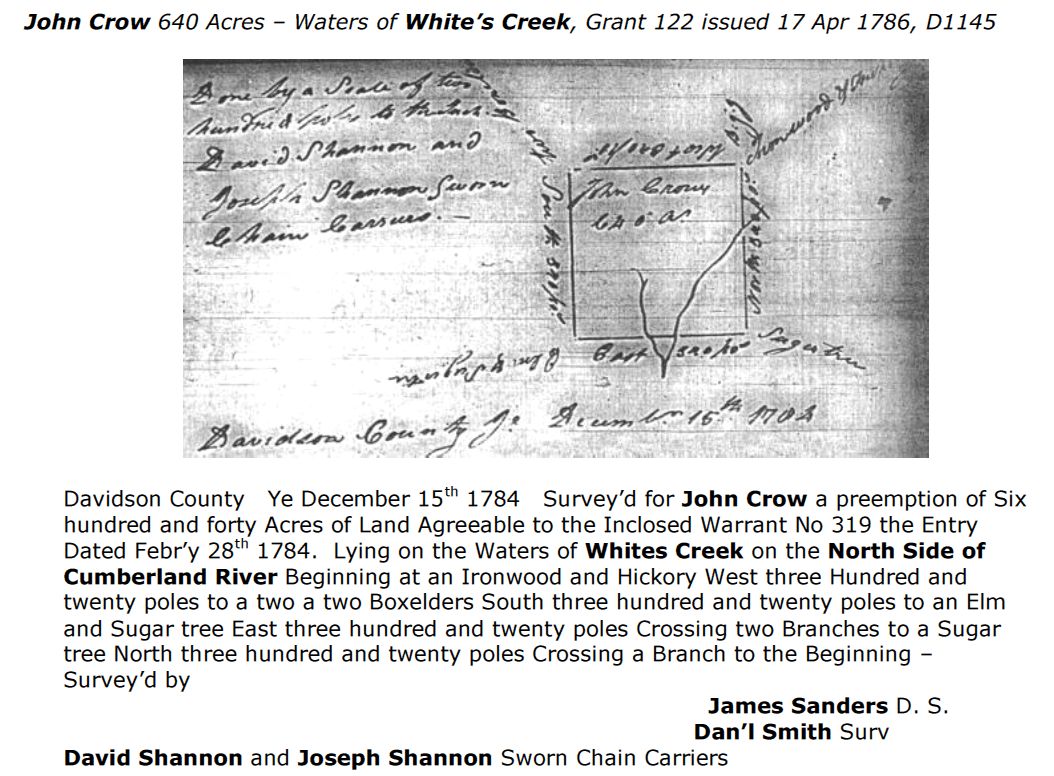 John Crow 640 Acres – Waters of White's Creek, Grant 122 issued 17 Apr 1786, D1145
Done by a Scale of two
hundred poles to the Inch
David Shannon and
Joseph Shannon Sworn
Chain Carriers. –
West 320 po
John Crow
640 as
South 320 po
North 320 po
East 320 po
Sugar tree
Elm & Sugar tree
Davidson County Ye December 15th 1784
Davidson County Ye December 15th 1784 Survey'd for John Crow a preemption of Six
hundred and forty Acres of Land Agreeable to the Inclosed Warrant No 319 the Entry
Dated Febr'y 28th 1784. Lying on the Waters of Whites Creek on the North Side of
Cumberland River Beginning at an Ironwood and Hickory West three Hundred and
twenty poles to a two a two Boxelders South three hundred and twenty poles to an Elm
and Sugar tree East three hundred and twenty poles Crossing two Branches to a Sugar
tree North three hundred and twenty poles Crossing a Branch to the Beginning –
Survey'd by
James Sanders D. S.
Dan'l Smith Surv
David Shannon and Joseph Shannon Sworn Chain Carriers